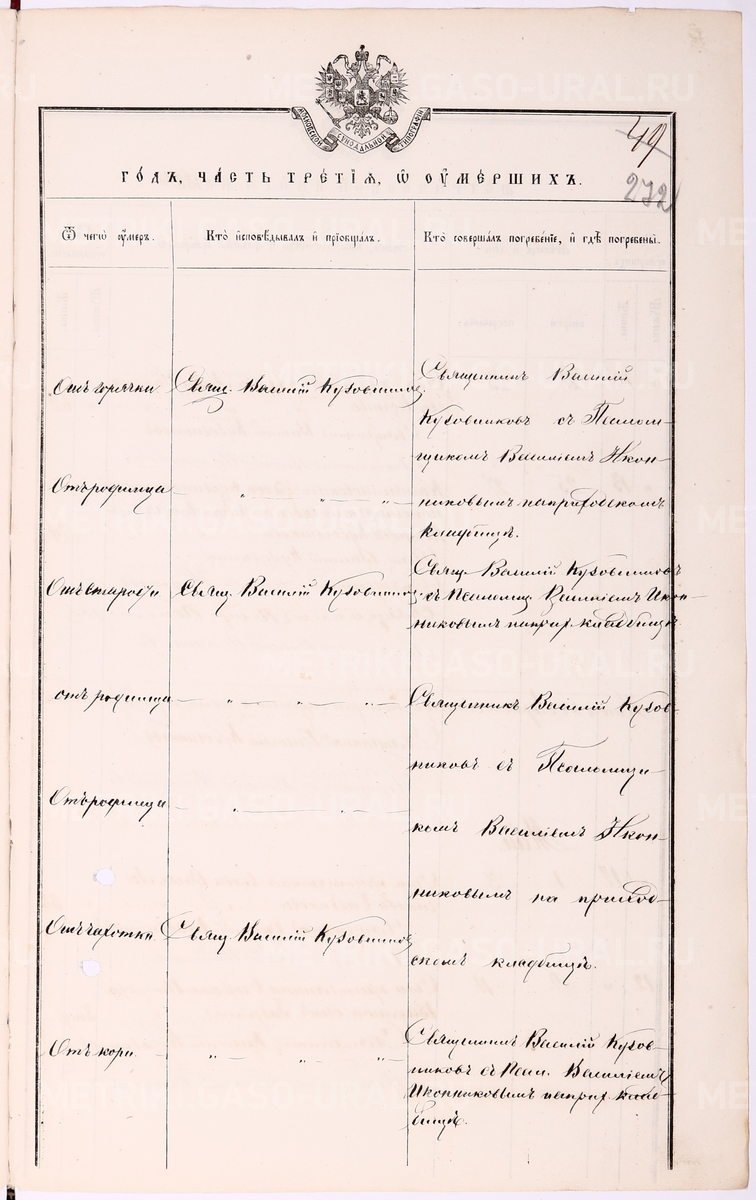 МОСКОВСКОЙ СѴНОДАЛЬНОЙ ТИПОГРАФІИ
49
272
ГО́ДЪ, ЧА́СТЬ ТРЕ́ТІѦ, Ѿ ОУ҆МЕ́РШИХЪ.
Ѿ чегѡ̀ ᲂу҆́меръ.
Кто̀ и҆сповѣ́дывалъ и҆ прїѡбща́лъ.
Кто̀ соверша́лъ погребе́нїе, и҆ гдѣ̀ погребены̀.
Отъ горячки
Свящ. Василій Кузовников.
Священникъ Василій
Кузовниковъ съ Псалом-
щикомъ Василіемъ Икон-
никовымъ на приходскомъ
кладбищѣ.
Отъ родимца
— „ — „ — „ —
Отъ старости
Свящ. Василій Кузовников.
Свящ. Василій Кузовниковъ
съ Псаломщ. Василіемъ Икон-
никовымъ на прих. кладбищѣ
отъ родимца
— „ — „ — „ —
Священникъ Василій Кузов-
никовъ съ Псаломщи-
комъ Василіемъ Икон-
никовымъ на приход-
скомъ кладбищѣ.
Отъ родимца
— „ — „ — „ —
Отъ чахотки
Свящ. Василій Кузовников
Отъ кори
„ — „ — „ —
Священникъ Василій Кузов-
никовъ съ Псал. Василіемъ
Иконниковымъ на прих. клад-
бищѣ.
METRIKI.GASO-URAL.RU